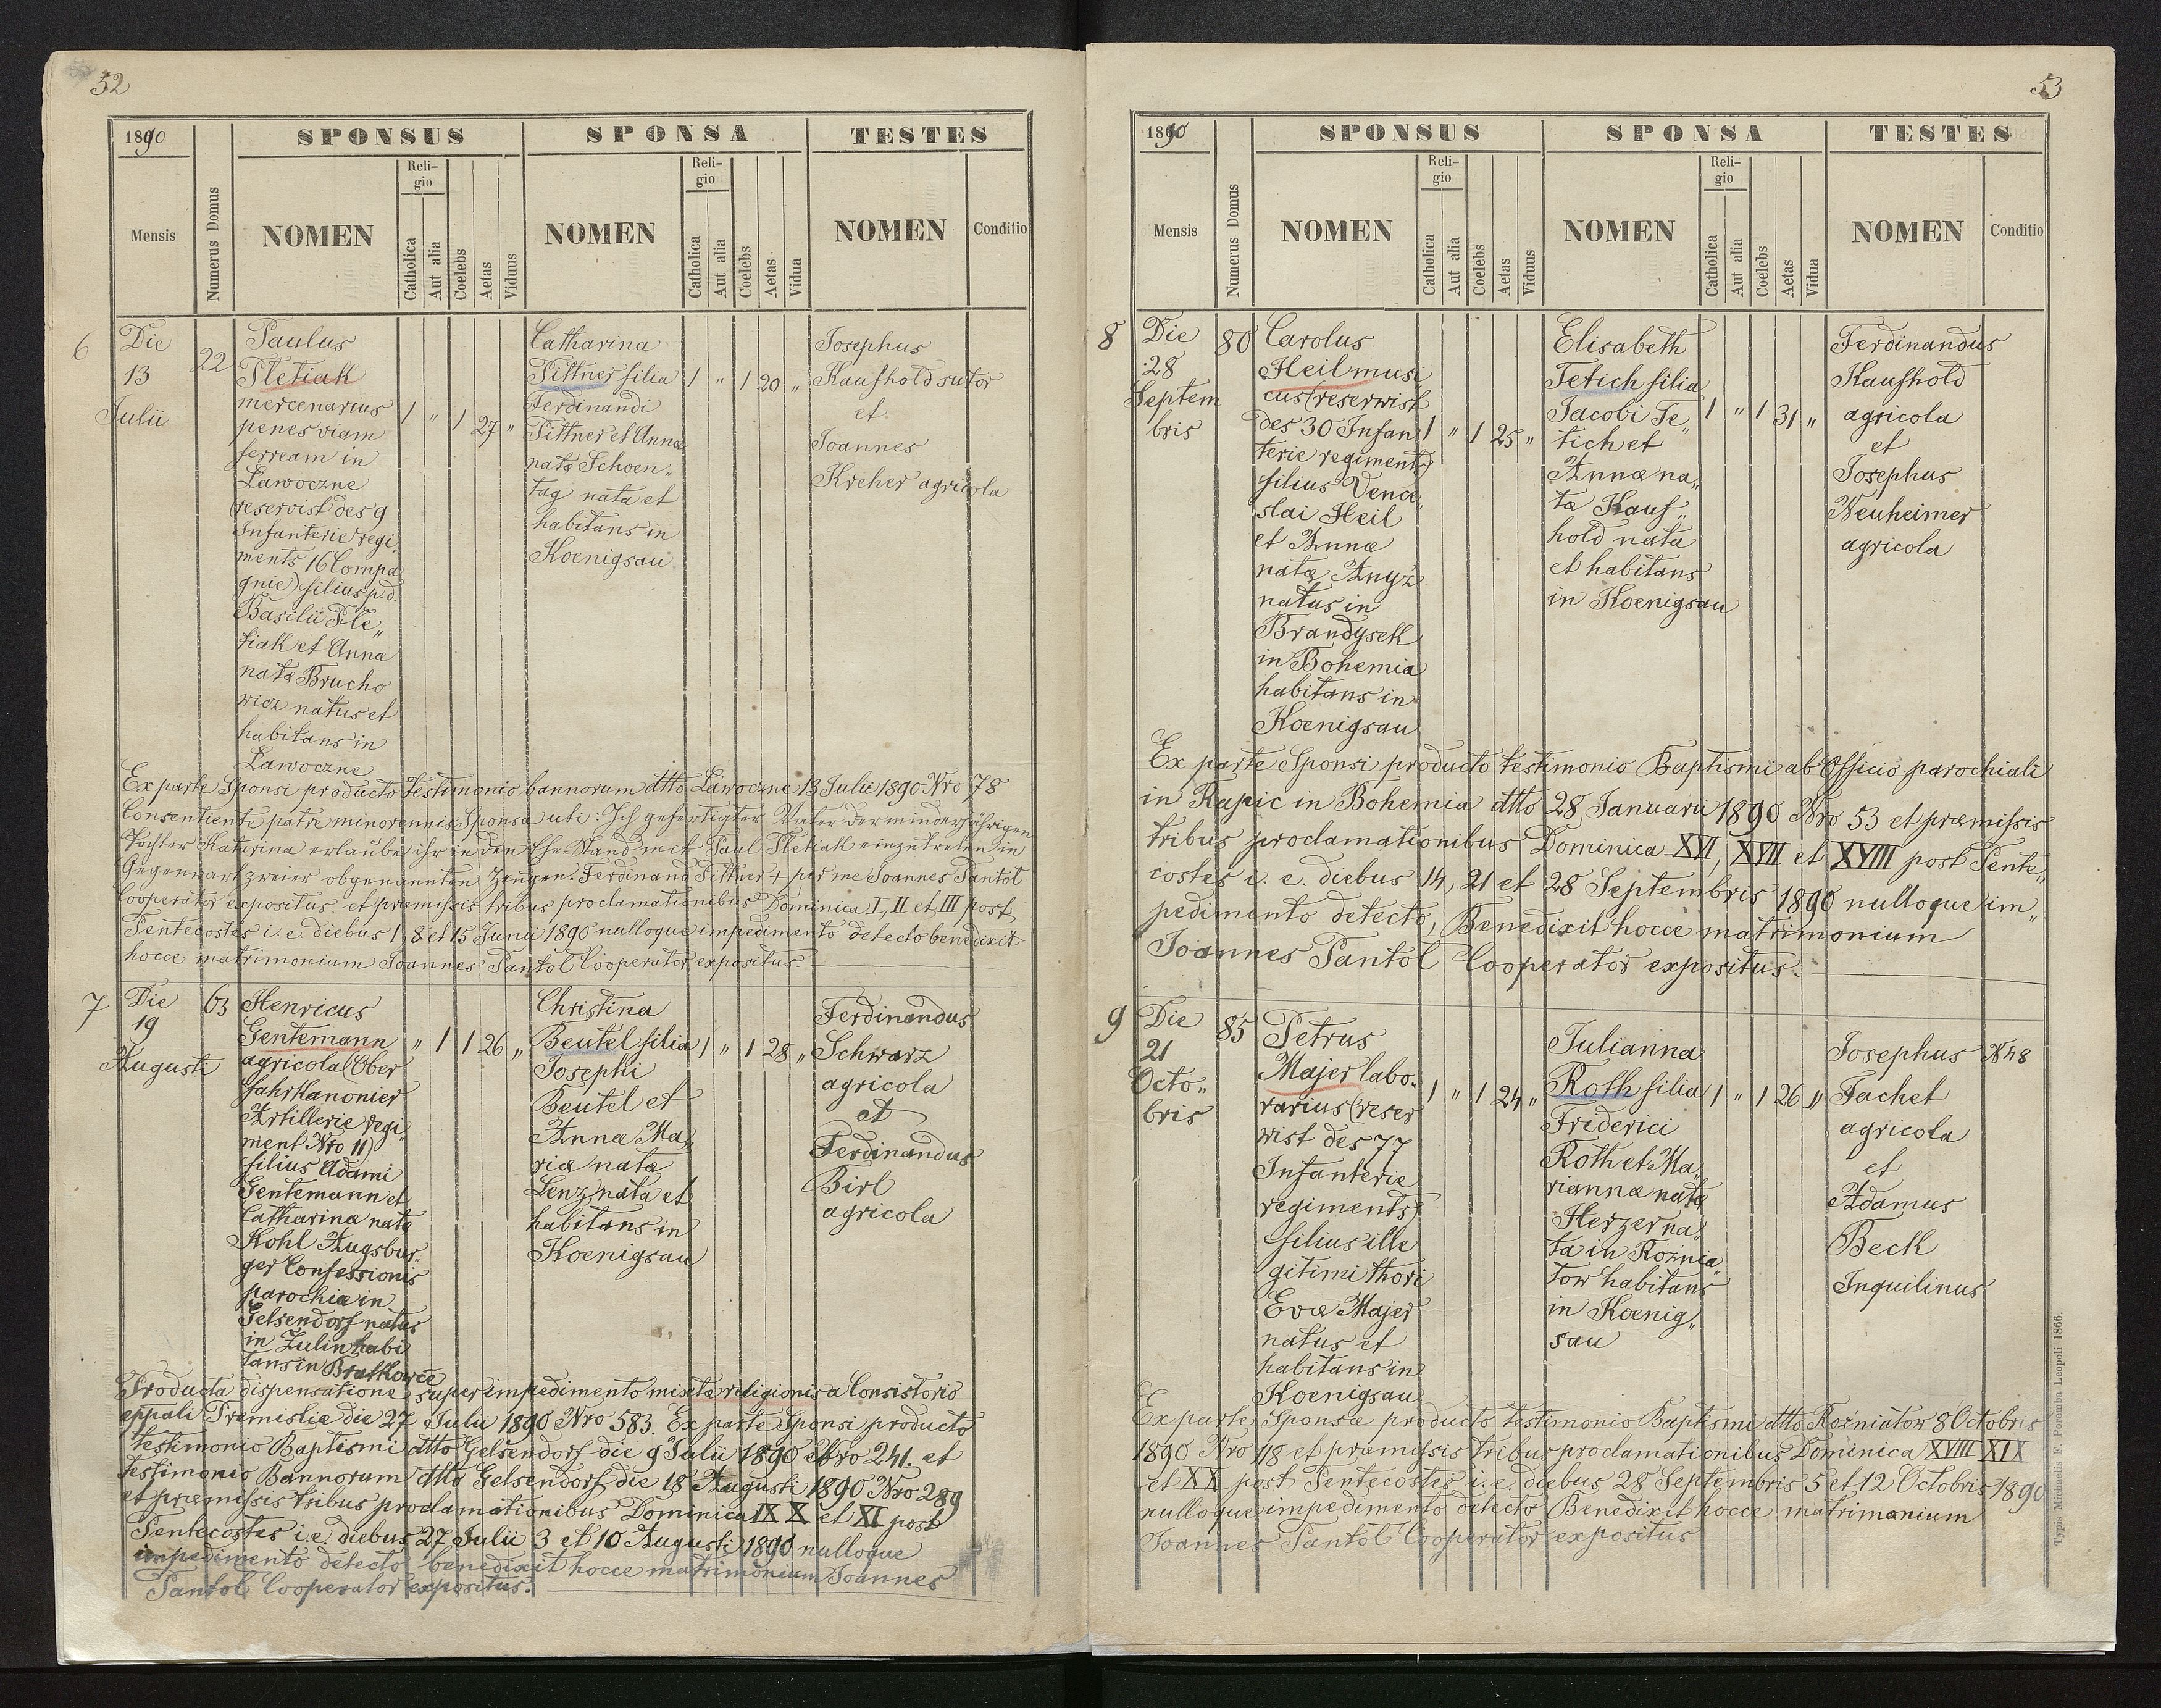 52
1890
SPONSUS
SPONSA
TESTES
Mensis
Numerus Domus
NOMEN
Religio
Catholica
Aut alia
Coelebs
Aetas
Viduus
NOMEN
Religio
Catholica
Aut alia
Coelebs
Aetas.
Vidua
NOMEN
Conditio
6
Die
13
Julii
22
Paulus
Pletiak
mercenarius
penes viam
ferream in
Lawoczne
(reservist des 9
Infanterie regi
ments 16 Compa
gnie) filius p.d.
Basilii Ple„
tiak et Annæ
natæ Brucho
wicz natus et
habitans in
Lawoczne
1 „ 1 27 „
Catharina
Pittner filia
Ferdinandi
Pittner et Annæ
natæ Schoen„
tag nata et
habitans in
Koenigsau
1 „ 1 20 „
Josephus
Kaufhold sutor
et
Joannes
Kreher agricola
Ex parte Sponsi producto testimonio bannorum dtto Lawoczne 13 Julii 1890 Nro 78
Consentiente patre minorennis Sponsæ uti: Ich gefertigter Vater der minderjährigen
Tochter Katarina erlaube ihr in den Ehe Stand mit Paul Pletiak einzutreten in
Gegenwart zweier obgenannten Zeugen. Ferdinand Pittner + per me Joannes Pantol
Cooperator expositus. et præmissis tribus proclamationibus Dominica I, II et III post
Pentecostes i. e. diebus 1, 8 et 15 Junii 1890 nulloque impedimento detecto benedixit
hocce matrimonium Joannes Pantol Cooperator expositus.
7
Die
19
Augusti
63
Henricus
Gentemann
agricola (Ober
fahrkanonier
Artillerie regi
ment Nro 11)
filius Adami
Gentemann et
Catharinæ natæ
Kohl Augsbur„
ger Confessionis
parochiæ in
Gelsendorf natus
in Zulin habi
tans in Bratkowce
„ 1 1 26 „
Christina
Beutel filia
Josephi
Beutel et
Annæ Ma„
riæ natæ
Lenz, nata et
habitans in
Koenigsau
1 „ 1 28 „
Ferdinandus
Schwarz
agricola
et
Ferdinandus
Birl
agricola
Producta dispensatione super impedimento mixtæ religionis a Consistorio
eppali Premisliæ die 27 Julii 1890 Nro 583. Ex parte Sponsi producto
testimonio Baptismi dtto Gelsendorf die 9 Julii 1890 Nro 241. et
testimonio Bannorum dtto Gelsendorf die 18 Augusti 1890 Nro 289
et præmissis tribus proclamationibus Dominica IX X et XI post
Pentecostes i.e. diebus 27 Julii 3 et 10 Augusti 1890 nulloque
impedimento detecto benedixit hocce matrimonium Joannes
Pantol Cooperator expositus.
53
1890
SPONSUS
SPONSA
TESTES
Mensis
Numerus Domus
NOMEN
Religio
Catholica
Aut alia
Coelebs
Aetas
Viduus
NOMEN
Religio
Catholica
Aut alia
Coelebs
Aetas
Vidua
NOMEN
Conditio
8
Die
28
Septem
bris
80
Carolus
Heil musi
cus (reserwist
des 30 Infan
terie regiments)
filius Vence„
slai Heil
et Annæ
natæ Anyž
natus in
Brandysek
in Bohemia
habitans in
Koenigsau
1 „ 1 25 „
Elisabeth
Tetich filia
Jacobi Te„
tich et
Annæ na„
tæ Kauf„
hold nata
et habitans
in Koenigsau
1 „ 1 31 „
Ferdinandus
Kaufhold
agricola
et
Josephus
Neuheimer
agricola
Ex parte Sponsi producto testimonio Baptismi ab Officio parochiali
in Rapic in Bohemia dtto 28 Januarii 1890 Nro 53 et præmissis
tribus proclamationibus Dominica XVI, XVII et XVIII post Pente„
costes i. e. diebus 14, 21 et 28 Septembris 1890 nulloque im„
pedimento detecto, Benedixit hocce matrimonium
Joannes Pantol Cooperator expositus.
9
Die
21
Octo„
bris
85
Petrus
Majer labo„
rarius (reser
wist des 77
Infanterie
regiments)
filius ille
gitimi thori
Evæ Majer
natus et
habitans in
Koenigsau
1 „ 1 24 „
Julianna
Roth filia
Friderici
Roth et Ma„
riannæ natæ
Herzer na„
ta in Rożnia„
tow habitans
in Koenig„
sau
1 „ 1 26 „
Josephus N 48
Fachet
agricola
et
Adamus
Beck
Inquilinus
Ex parte Sponsæ producto testimonio Baptismi dtto Rożniatow 8 Octobris
1890 Nro 118 et præmissis tribus proclamationibus Dominica XVIII XIX
et XX post Pentecostes i. e. diebus 28 Septembris 5 et 12 Octobris 1890
nulloque impedimento detecto Benedixit hocce matrimonium
Joannes Pantol Cooperator expositus
Typis Michaelis F. Poremba Leopoli 1866.